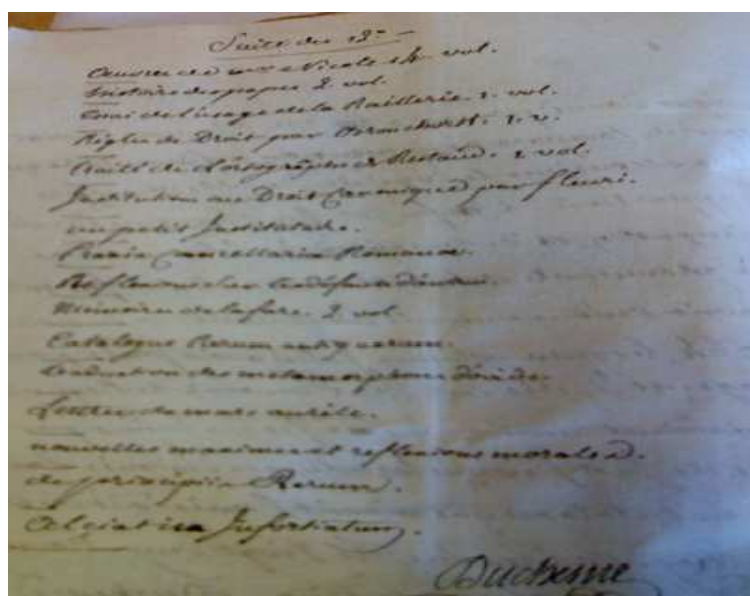 Suite du 12º
Oeuvres de mr Nicole 14 vol.
histoire des papes 2 vol.
Essai de l'usage de la Raillerie. 1. vol.
Règles de Droit par 1. v.
traité de L'ortographe de Restaud. 1 vol.
Institution au Droit Canonique par fleuri.
un petit Institutaire.
Praxis Cancellaria Romanae.
Reflexions sur les défauts d'autrui.
Mémoires de la fare. 2 vol.
Catalogus Rerum antiquarum.
traduction des metamorphoses d'ovide.
Lettres de marc aurèle.
nouvelles maximes et reflexions morales.
de principiis Rerum.
Alciat in Infortiatum.
Duchesne